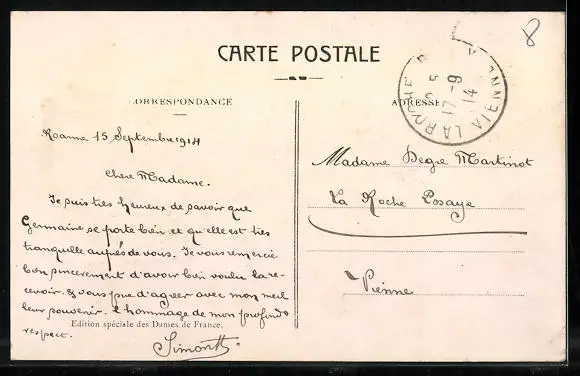 8
CARTE POSTALE
CORRESPONDANCE
ADRESSE
17-9
14
VIENNE
Roanne 15 Septembre 1914
Chère Madame.
Je suis très heureux de savoir que
Germaine se porte bien et qu'elle est très
tranquille auprès de vous. Je vous remercie
bien sincèrement d'avoir bien voulu la re-
cevoir. & vous prie d'agréer avec mon meil
leur souvenir. l'hommage de mon profond
respect.
Edition spéciale des Dames de France.
Madame Degre Martinot
La Roche Posaye
Vienne